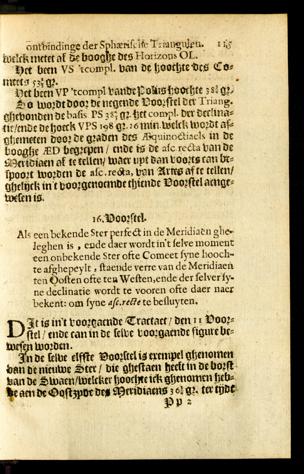 ontbindinge der Sphærische Triangulen. 115
welck metet af de booghe des Horizons OL.
Het been VS 'tcompl. van de hoochte des Co-
meets 53¾ gr.
Het been VP 'tcompl vande Polus hoochte 38¾ gr.
So wordt door de negende Voorstel der Triang.
ghevonden de basis PS 38¾ gr. het compl. der declina-
tie/ende de hoeck VPS 198 gr. 16 min. welck wordt af-
ghemeten door de graden des Æquinoctiaels in de
booghe ÆD begrepen/ ende is de asc. recta van de
Meridiaen af te tellen/ waer upt dan voorts can be-
spoort worden de asc. recta, van Artes af te tellen/
ghelijck in t voorgenoemde thiende Voorstel aenge-
wesen is.
16. Voorstel.
Als een bekende Ster perfect in de Meridiaen ghe-
leghen is , ende daer wordt in't selve moment
een onbekende Ster ofte Comeet syne hooch-
te afghepeylt , staende verre van de Meridiaen
ten Oosten ofte ten Westen, ende der selver sy-
ne declinatie wordt te vooren ofte daer naer
bekent: om syne asc. recte te besluyten.
DIt is in't voorgaende Tractaet / den 11 Voor-
stel / ende can in de selve voorgaende figure be-
wesen worden.
In de selve elfste Voorstel is exempel ghenomen
van de nieuwe Ster / die ghestaen heeft in de borst
van de Swaen/welcker hoochte ick ghenomen heb-
be aen de Oostzyde des Meridiaens 36¾ gr. ter tijdt
Pp 2